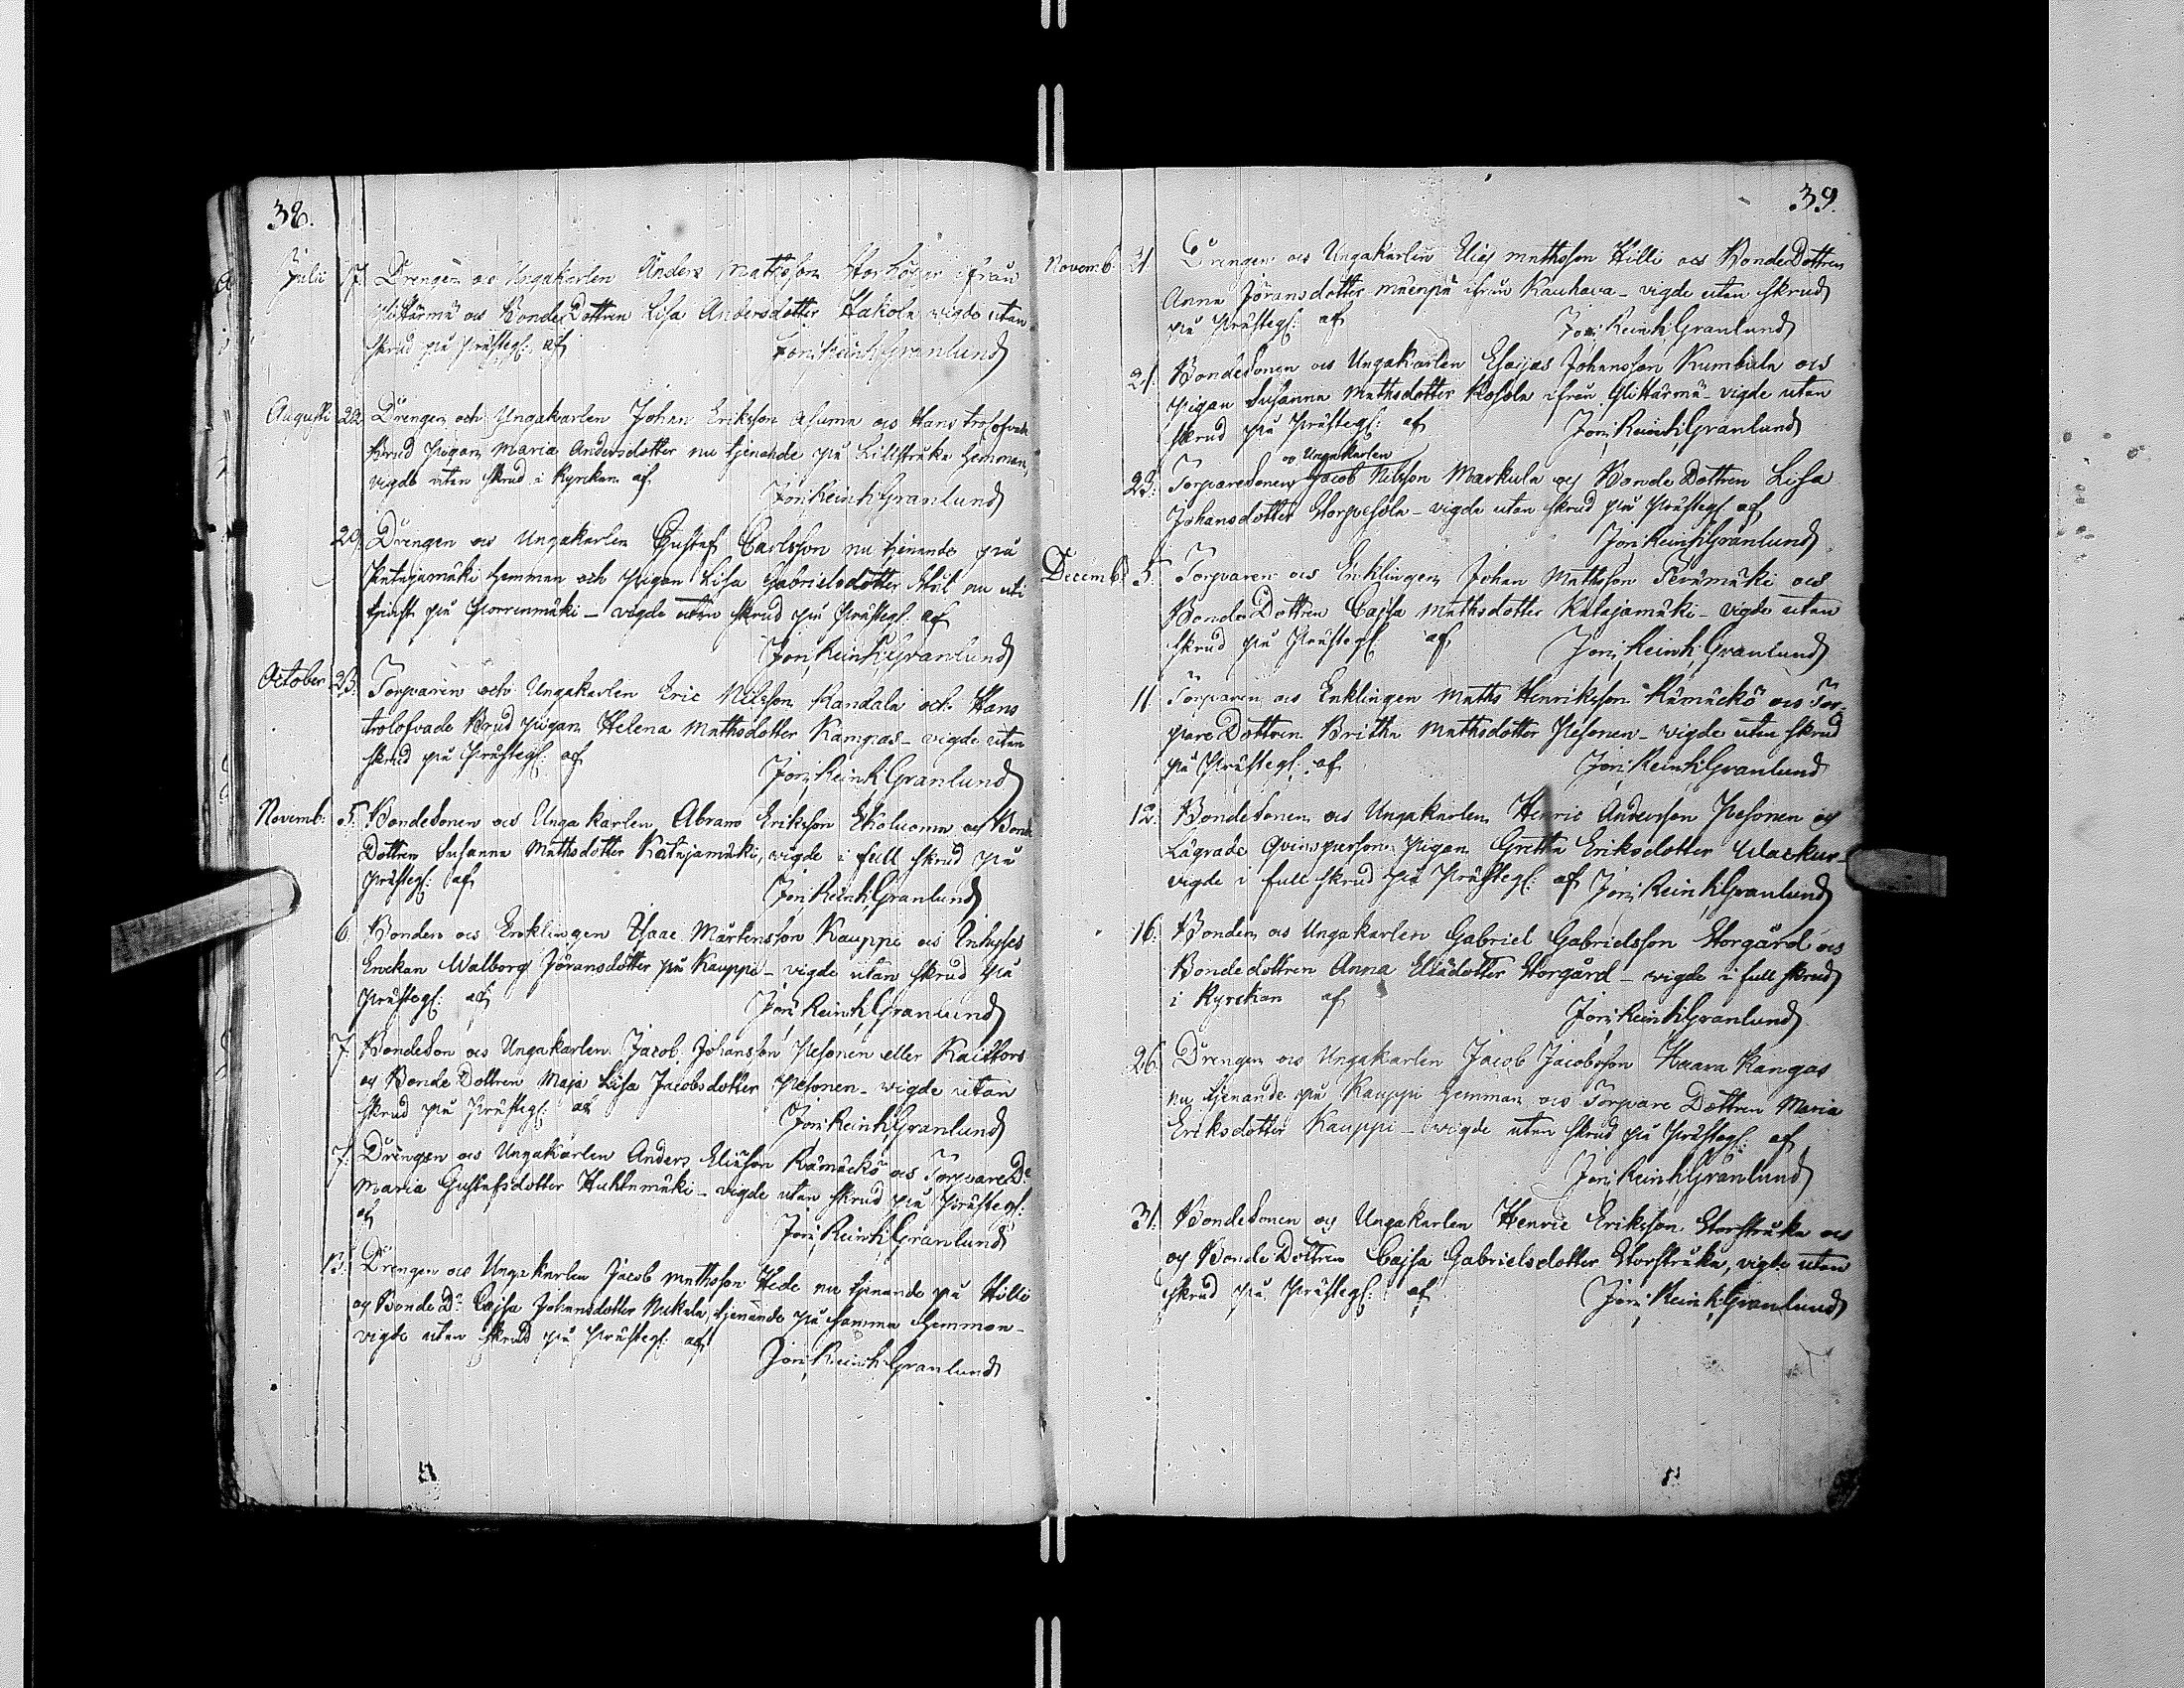 38.
Julii 17. Drengen och Ungakarlen Anders Matsson Storhögar ifrån
Ylihärmä och Bonde Dottren Lisa Andersdotter Hakola vigde utan
skrud på Prästeg: af Jöri, Reinh, Granlund
Augusti 22. Drengen och Ungakarlen Johan Eriksson Asuma och Hans trolofvade
Brud Pigan Maria Andersdotter nu tjenande på Lillstråka hemman,
vigde utan skrud i Kyrckan af Jöri, Reinh, Granlund
29. Drengen och Ungakarlen Gustaf Carlsson nu tjenande på
Katajamäki hemman och Pigan Lisa Gabrielsdotter nu uti
tjenst på Porrenmäki – vigde utan skrud på Prästeg: af
Jöri, Reinh, Granlund
October 23. Torparen och Ungakarlen Eric Nilsson Kandala och Hans
trolofvade Brud Pigan Helena Mathsdotter Kampas – vigde utan
skrud på Prästeg: af Jöri, Reinh, Granlund
Novemb: 5. Bondesonen och Ungakarlen Abram Eriksson Ekoluoma och Bonde
Dottren Susanna Mathsdotter Katajamäki, vigde i full skrud på
Prästeg: af Jöri, Reinh, Granlund
6. Bonden och Encklingen Isaac Mårtensson Kauppi och Inhyses
Enckan Walborg Jöransdotter på Kauppi – vigde utan skrud på
Prästeg: af Jöri, Reinh, Granlund
7. Bondeson och Ungakarlen Jacob Johansson Pesonen eller Kaitfors
och Bonde Dottren Maja Lisa Jacobsdotter Pesonen – vigde utan
skrud på Prästeg: af Jöri, Reinh, Granlund
7. Drengen och Ungakarlen Anders Eliasson Rämäckö och Torpare D:
Maria Gustafsdotter Huhtamäki – vigde utan skrud på Prästeg:
af Jöri, Reinh, Granlund
13. Drengen och Ungakarlen Jacob Mathsson Hede nu tjenande på Hilli
och Bonde D: Cajsa Johansdotter Nukala, tjenande på samma Hemman –
vigde utan skrud på Prästeg: af Jöri, Reinh, Granlund
39.
Novemb: 21. Drengen och Ungakarlen Elias Mathsson Hilli och Bonde Dottren
Anna Jöransdotter Mäenpä ifrån Kauhava – vigde utan skrud
på Prästeg: af Jöri, Reinh, Granlund
21. Bondesonen och Ungakarlen Esaijas Johansson Kumbula och
Pigan Susanna Mathsdotter Kosola ifrån Ylihärmä – vigde utan
skrud på Prästeg: af Jöri, Reinh, Granlund
och Ungakarlen
23. Torparesonen Jacob Nilsson Markula och Bonde Dottren Lisa
Johansdotter Storpesola – vigde utan skrud på Prästeg: af
Jöri, Reinh, Granlund
Decemb: 5. Torparen och Enklingen Johan Mathsson Perämäki och
Bonde Dottren Cajsa Mathsdotter Katajamäki – vigde utan
skrud på Prästeg: af Jöri, Reinh, Granlund
11. Torparen och Enklingen Maths Henriksson Rämäckö och Tor-
pare Dottren Britha Mathsdotter Pesonen – vigde utan skrud
på Prästeg: af Jöri, Reinh, Granlund
12. Bondesonen och Ungakarlen Henric Andersson Pesonen och
Lägrade Qvinsperson Pigan Gretha Eriksdotter Wackur –
vigde i full skrud på Prästeg: af Jöri, Reinh, Granlund
16. Bonden och Ungakarlen Gabriel Gabrielsson Storgård och
Bondedottren Anna Eliædotter Storgård – vigde i full skrud
i Kyrckan af Jöri, Reinh, Granlund
26. Drengen och Ungakarlen Jacob Jacobsson Haara Kangas
nu tjenande på Kauppi hemman och Torpare Dottren Maria
Eriksdotter Kauppi – vigde utan skrud på Prästeg: af
Jöri, Reinh, Granlund
31. Bondesonen och Ungakarlen Henric Eriksson Storstråka och
och Bonde Dottren Cajsa Gabrielsdotter Storstråka, vigde utan
skrud på Prästeg: af Jöri, Reinh, Granlund